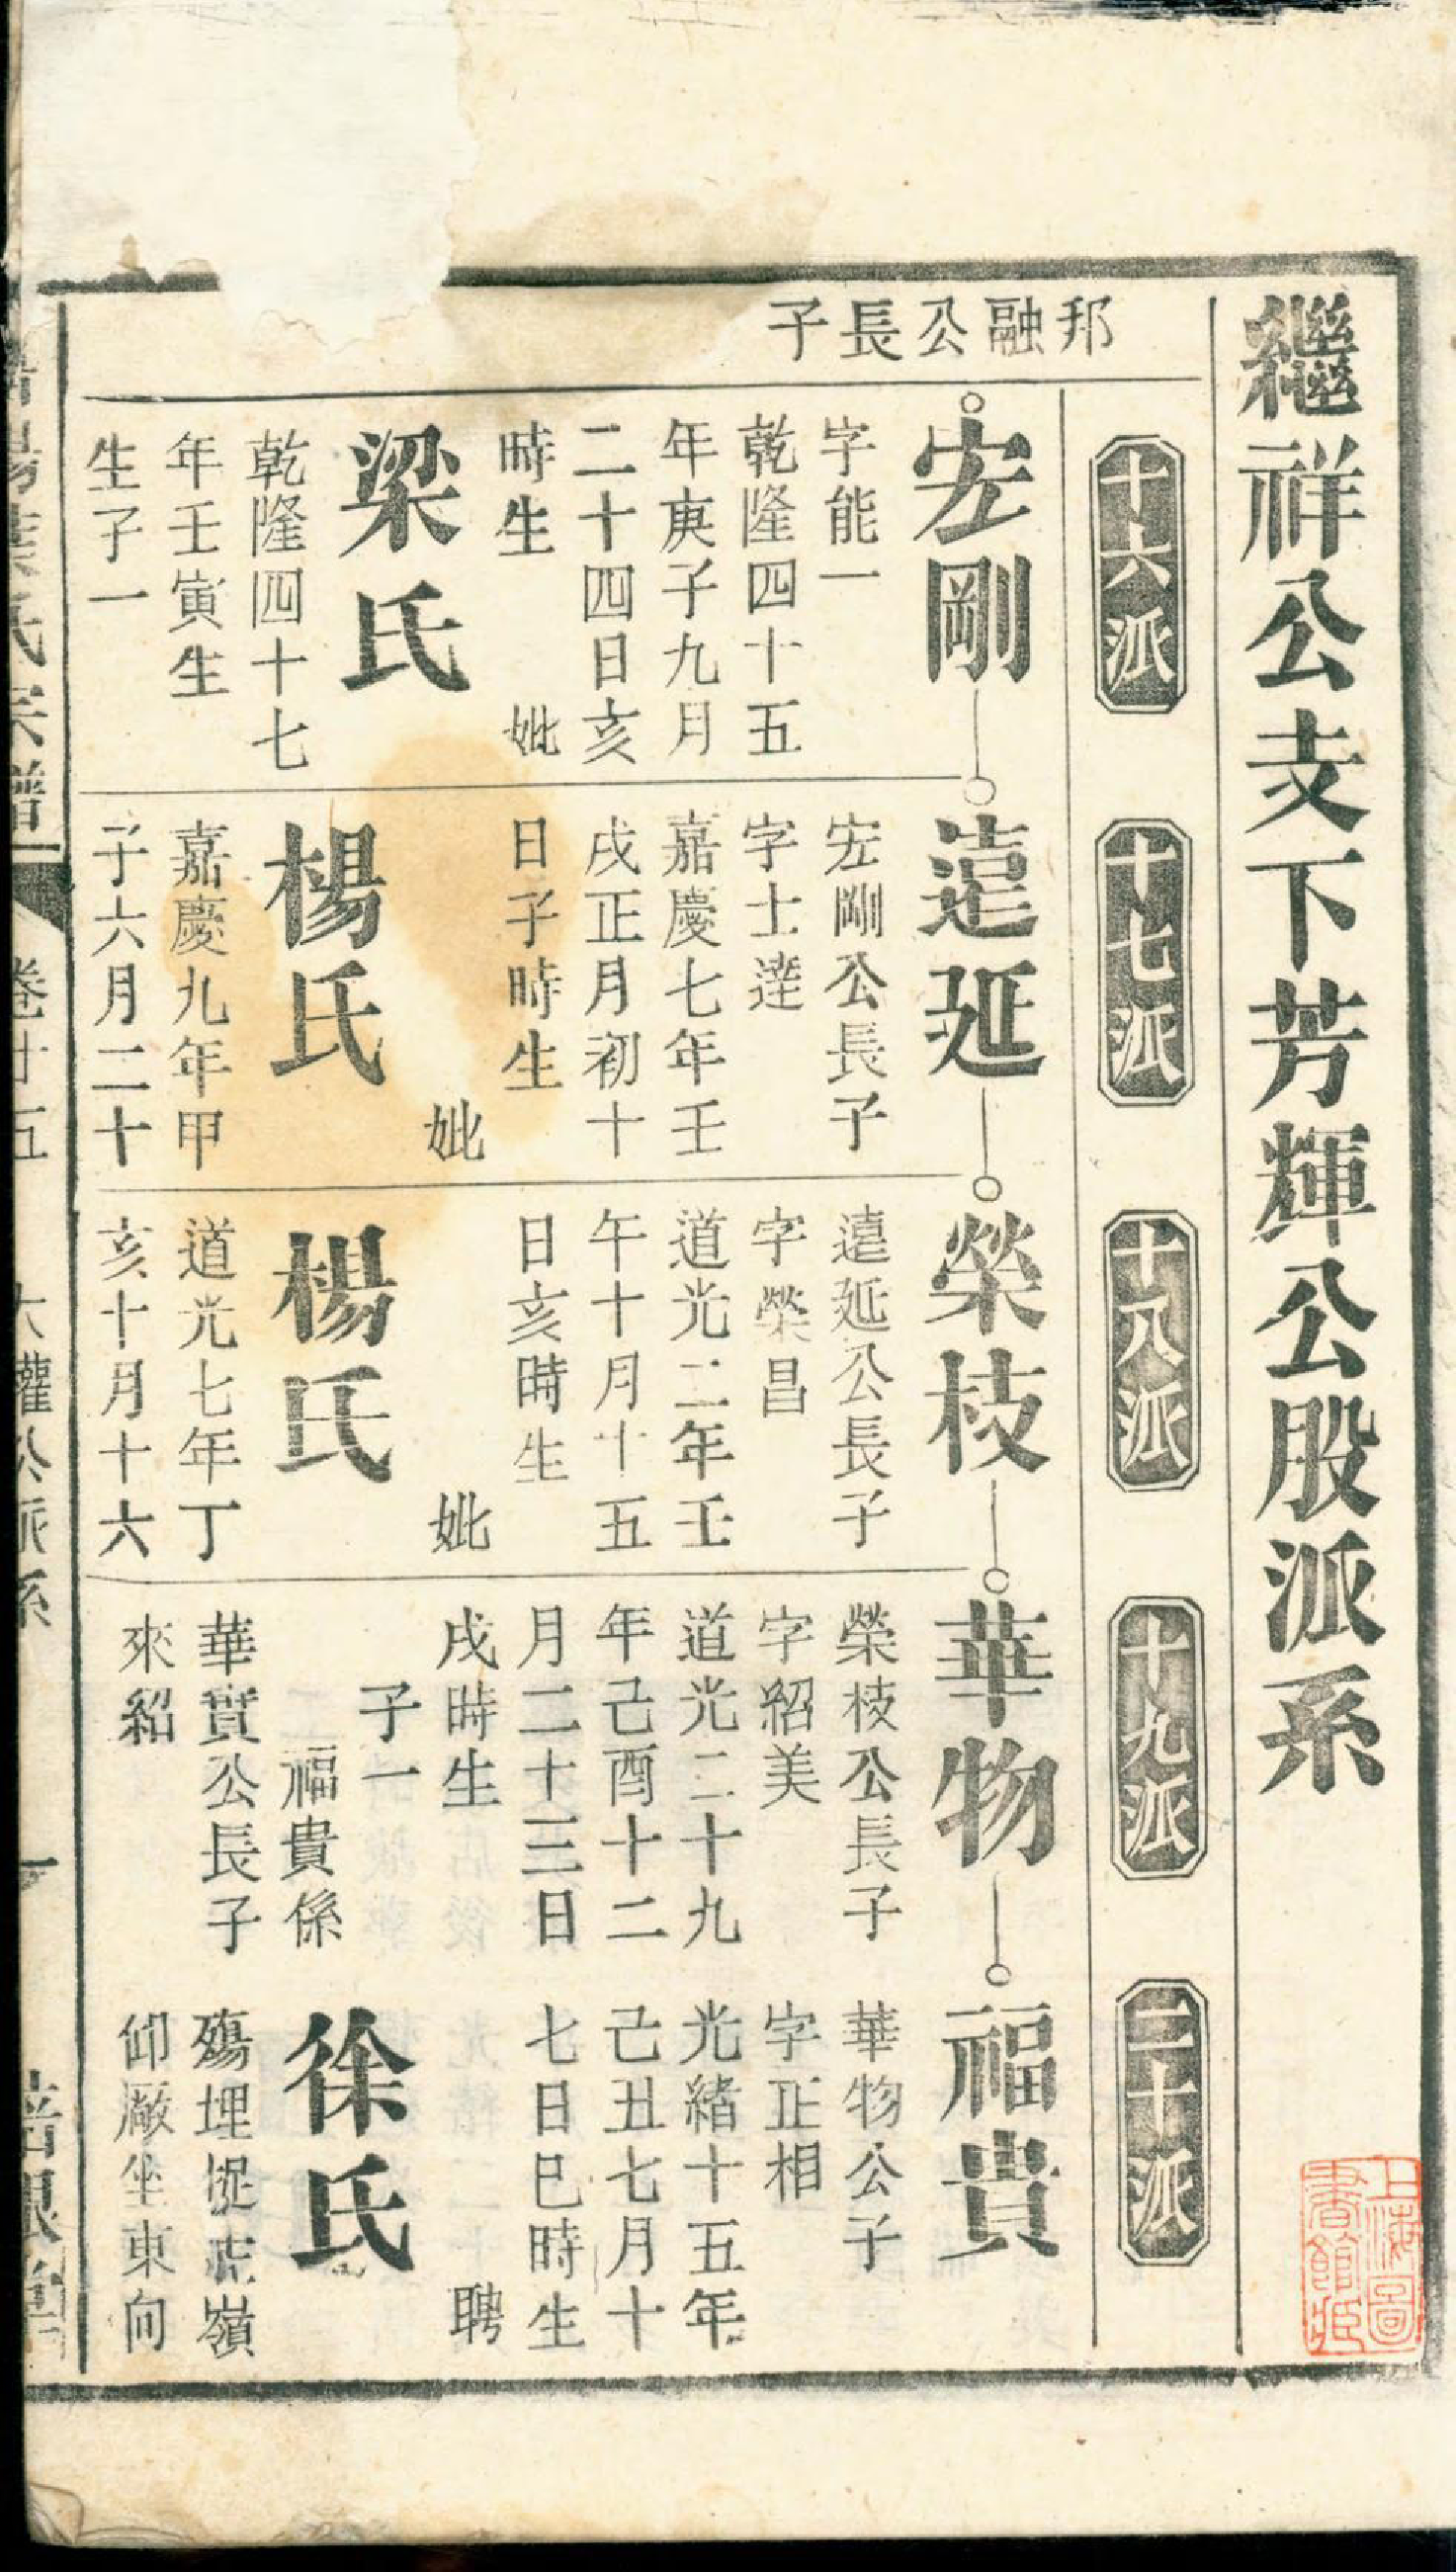 繼祥公支下芳輝公股派系
十六派
十七派
十八派
十九派
二十派
邦融公長子
宏剛
字能一
乾隆四十五
年庚子九月
二十四日亥
時生 妣
梁氏
乾隆四十七
年壬寅生
生子一
遠延
宏剛公長子
字士達
嘉慶七年壬
戌正月初十
日子時生
妣
楊氏
嘉慶九年甲
子六月二十
榮枝
遠延公長子
字榮昌
道光二年壬
午十月十五
日亥時生
妣
楊氏
道光七年丁
亥十月十六
華物
榮枝公長子
字紹美
道光二十九
年己酉十二
月二十三日
戌時生
子一
福貴係
華實公長子
來紹
福貴
華物公子
字正相
光緒十五年
己丑七月十
七日巳時生
聘
徐氏
殤埋 嶺
仰廠坐東向
氏宗譜
卷廿五
權公派系
一
上海圖
書館藏